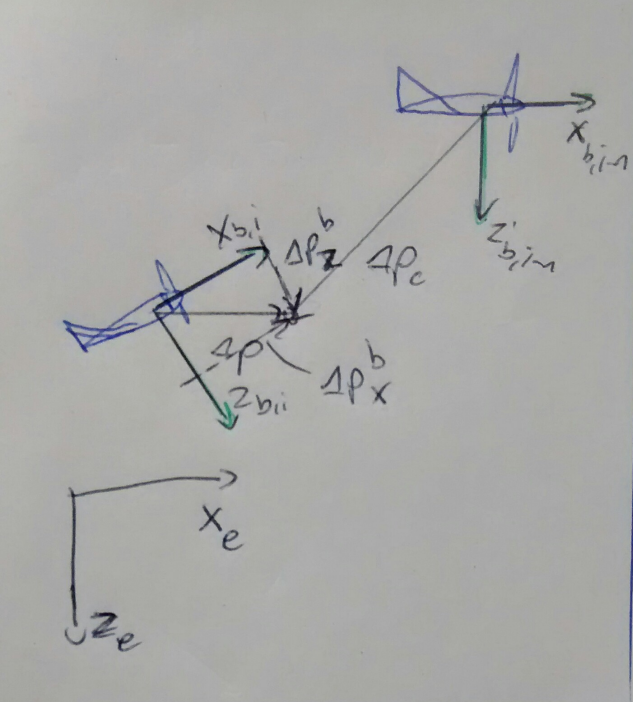 x_{b,i-1}
z_{b,i-1}
x_{b,i}
Δp_z^b
Δp_c
Δp
Δp_x^b
z_{b,i}
x_e
z_e